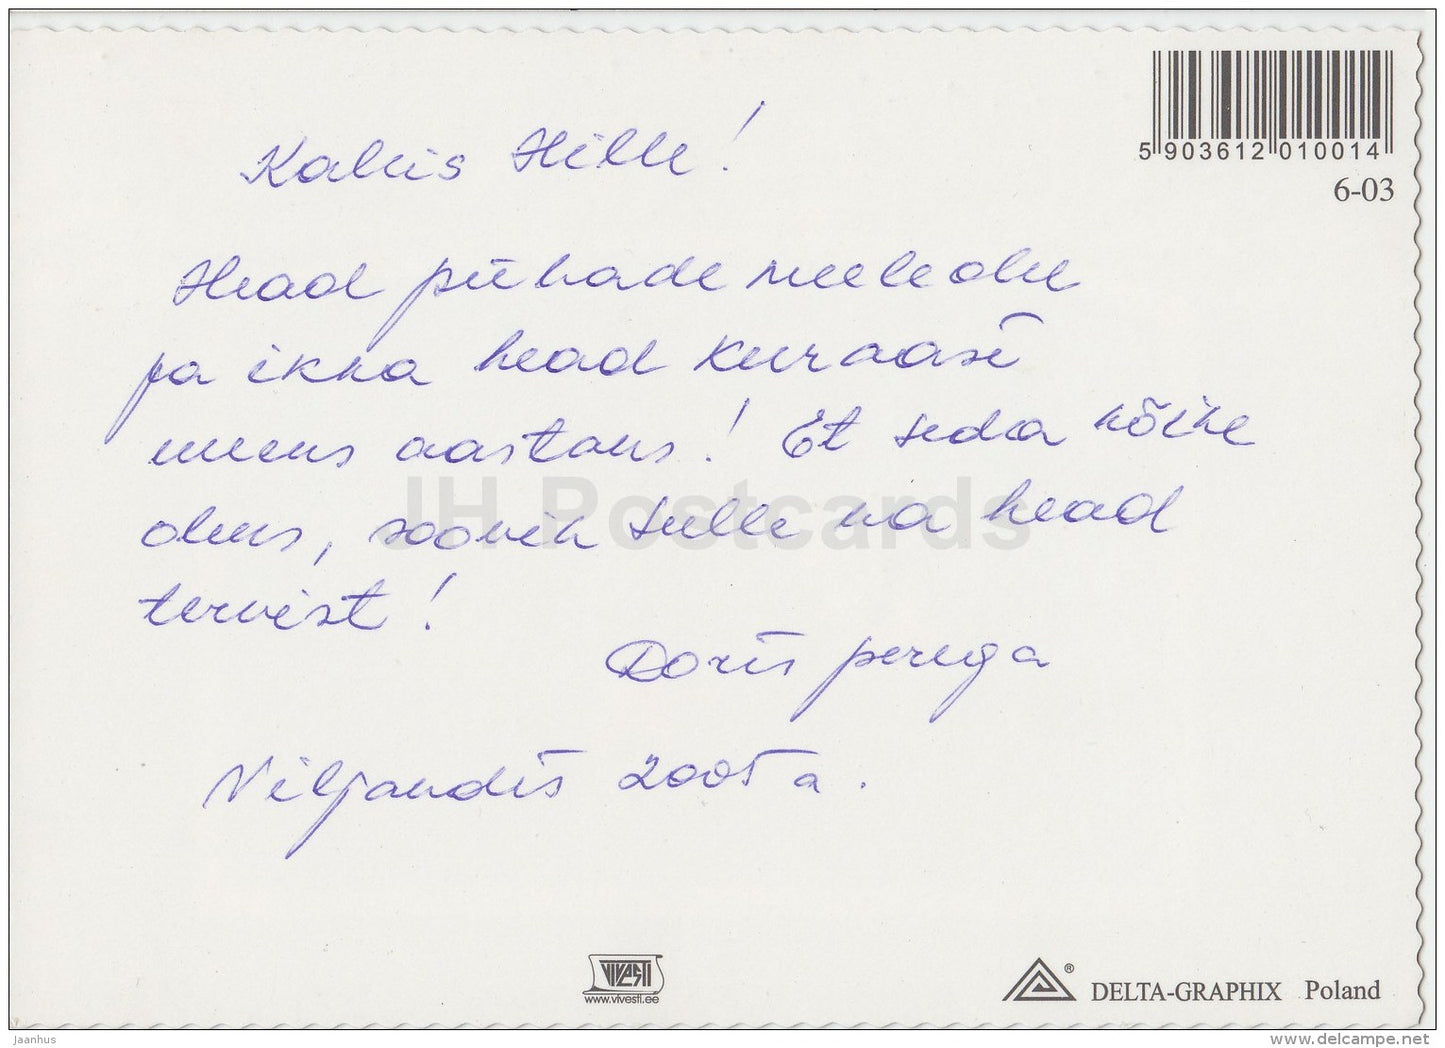 5 903612 010014
6-03
Kallis Hille!
Head pühade meeleolu
ja ikka head kuraasi
uueks aastaks! Et seda kõike
oleks, soovin Sulle ka head
tervist!
Doris perega
Viljandis 2005 a.
JH Postcards
VIVESTI
www.vivesti.ee
® DELTA-GRAPHIX Poland
jaanhus
www.delcampe.net